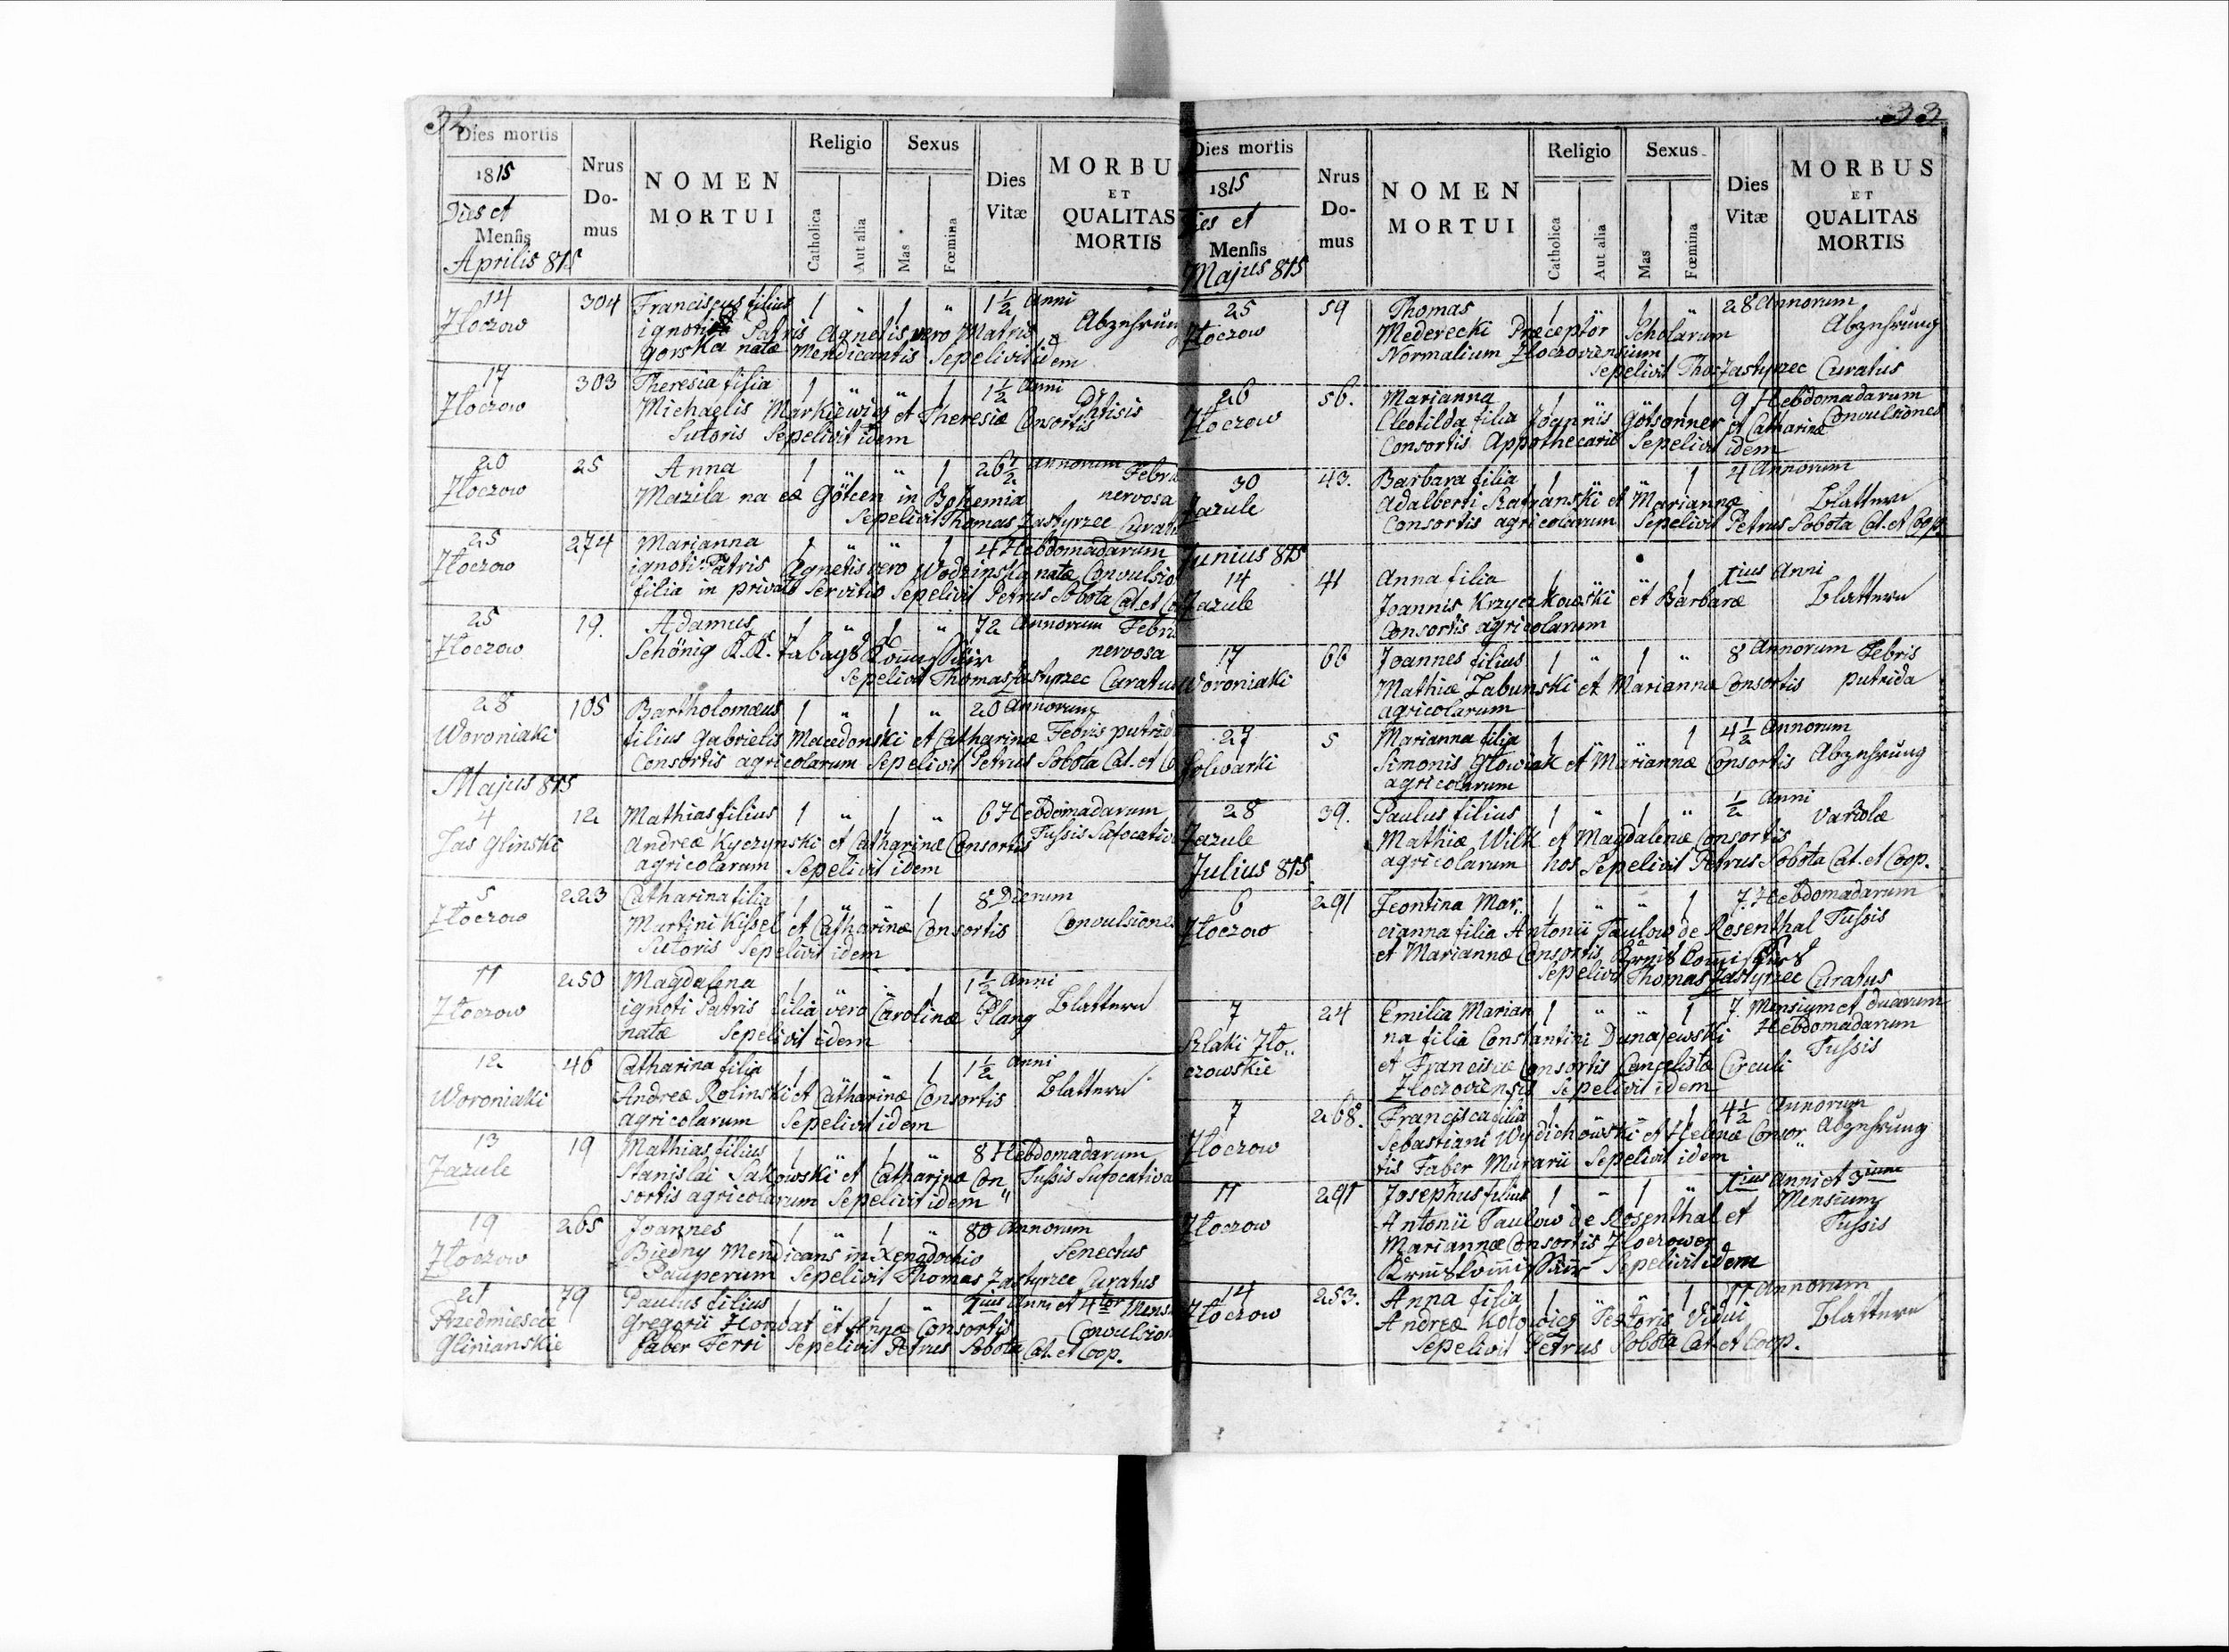 32
Dies mortis
1815
Dies et
Mensis
Aprilis 815
Nrus
Do-
mus
NOMEN
MORTUI
Religio
Catholica
Aut alia
Sexus
Mas
Fœmina
Dies
Vitæ
MORBU
ET
QUALITAS
MORTIS
14 304 Franciscus filius 1 " 1 " 1½ Anni
Złoczow Patris Agnetis vero Matris Abzehrun
Gorska natæ Mendicantis Sepelivit idem
17 303 Theresia filia 1 " " 1 1½ Anni
Złoczow Michaelis Markiewicz et Theresiæ Consortis Phtisis
Sutoris Sepelivit idem
20 25 Anna 1 " " 1 26½ Annorum Febri
Złoczow Mazila na eæ Götcen in Bohemia nervosa
Sepelivit Thomas Zastyrzec Curat
25 274 Marianna 1 " " 1 4 Hebdomadarum
Złoczow ignoti Patris Agnetis vero Wodzinska natæ Convulsio
filia in privato Servitio Sepelivit Petrus Sobota Cat. et Co
25 19. Adamus 1 " 1 " 72 Annorum Febri
Złoczow Schönig K.K. nervosa
Sepelivit Thomas Zastyrzec Curatus
28 105 Bartholomæus 1 " 1 " 20 Annorum
Woroniaki filius Gabrielis Macedonski et Catharinæ Febris putrid
Consortis agricolarum Sepelivit Petrus Sobota Cat. et Co
Majus 815
4 12 Mathias filius 1 " 1 " 6 Hebdomadarum
Las Glinski Andreæ Kyczynski et Catharinæ Consortis Tussis Sufocativa
agricolarum Sepelivit idem
5 223 Catharina filia 1 " " 1 8 Dierum
Złoczow Martini Kissel et Catharinæ Consortis Convulsiones
Sutoris Sepelivit idem
11 250 Magdalena 1 " " 1 1½ Anni
Złoczow ignoti Patris filia vero Carolinæ Plang Blattern
natæ Sepelivit idem
12 46 Catharina filia 1 " " 1 1½ Anni
Woroniaki Andreæ Rolinski et Catharinæ Consortis Blattern
agricolarum Sepelivit idem
13 19 Mathias filius 1 " 1 " 8 Hebdomadarum
Zazule Stanislai Sakowski et Catharinæ Con Tussis Sufocativa
sortis agricolarum Sepelivit idem "
19 265 Joannes 1 " 1 " 80 Annorum
Złoczow Biedny Mendicans in Xenodochio Senectus
Pauperum Sepelivit Thomas Zastyrzec Curatus
21 79 Paulus filius 1 " 1 " 1ius Anni et 4tor Mens
Przedmiescie Gregorii Hordat et Annæ Consortis Convulsion
Glinianskie faber Ferri Sepelivit Petrus Sobota Cat. et Coop.
33
Dies mortis
1815
Dies et
Mensis
Majus 815
Nrus
Do-
mus
NOMEN
MORTUI
Religio
Catholica
Aut alia
Sexus
Mas
Fœmina
Dies
Vitæ
MORBUS
ET
QUALITAS
MORTIS
25 59 Thomas 1 " 1 " 28 Annorum
Złoczow Mederecki Præceptor Scholarum Abzehrung
Normalium Złoczoviensium
Sepelivit Tho: Zastyrzec Curatus
26 56. Marianna 1 " " 1 9 Hebdomadarum
Złoczow Cleotilda filia Joannis Götsonner et Catharinæ Convulsiones
Consortis Appothecarii Sepelivit idem
30 43. Barbara filia 1 " " 1 4 Annorum
Zazule Adalberti Szafranski et Mariannæ Blattern
Consortis agricolarum Sepelivit Petrus Sobota Cat. et Coop.
Junius 815
14 41 Anna filia 1 " " 1 1ius Anni
Zazule Joannis Krzyczkowski et Barbaræ Blattern
Consortis agricolarum
17 66 Joannes filius 1 " 1 " 8 Annorum Febris
Woroniaki Mathiæ Zabunski et Mariannæ Consortis putrida
agricolarum
27 5 Marianna filia 1 " " 1 4½ Annorum
Folwarki Simonis Głowiak et Mariannæ Consortis Abzehrung
agricolarum
28 39. Paulus filius 1 " 1 " ½ Anni
Zazule Mathiæ Wilk et Magdalenæ Consortis Variolæ
agricolarum hos Sepelivit Petrus Sobota Cat. et Coop.
Julius 815
6 291 Leontina Mar,, 1 " " 1 7. Hebdomadarum
Złoczow cianna filia Antonii Taulow de Rosenthal Tussis
et Mariannæ Consortis
Sepelivit Thomas Zastyrzec Curatus
7 24 Emilia Marian 1 " " 1 7. Mensium et duarum
Szlaki Zło,, na filia Constantini Dunajewski Hebdomadarum
czowskie et Franciscæ Consortis Cancelistæ Circuli Tussis
Złoczoviensis Sepelivit idem
7 268. Francisca filia 1 " " 1 4½ Annorum
Złoczow Sebastiani Wydichowski et Helenæ Consor,, Abzehrung
tis Faber Murarii Sepelivit idem
11 291 Josephus filius 1 " 1 " 1ius Anni et 3ium
Złoczow Antonii Taulow de Rosenthal et Mensium
Mariannæ Consortis Złoczower Tussis
Sepelivit idem
14 253. Anna filia 1 " " 1 11 Annorum
Złoczow Andreæ Kotowicz Textoris Vidui Blattern
Sepelivit Petrus Sobota Cat. et Coop.